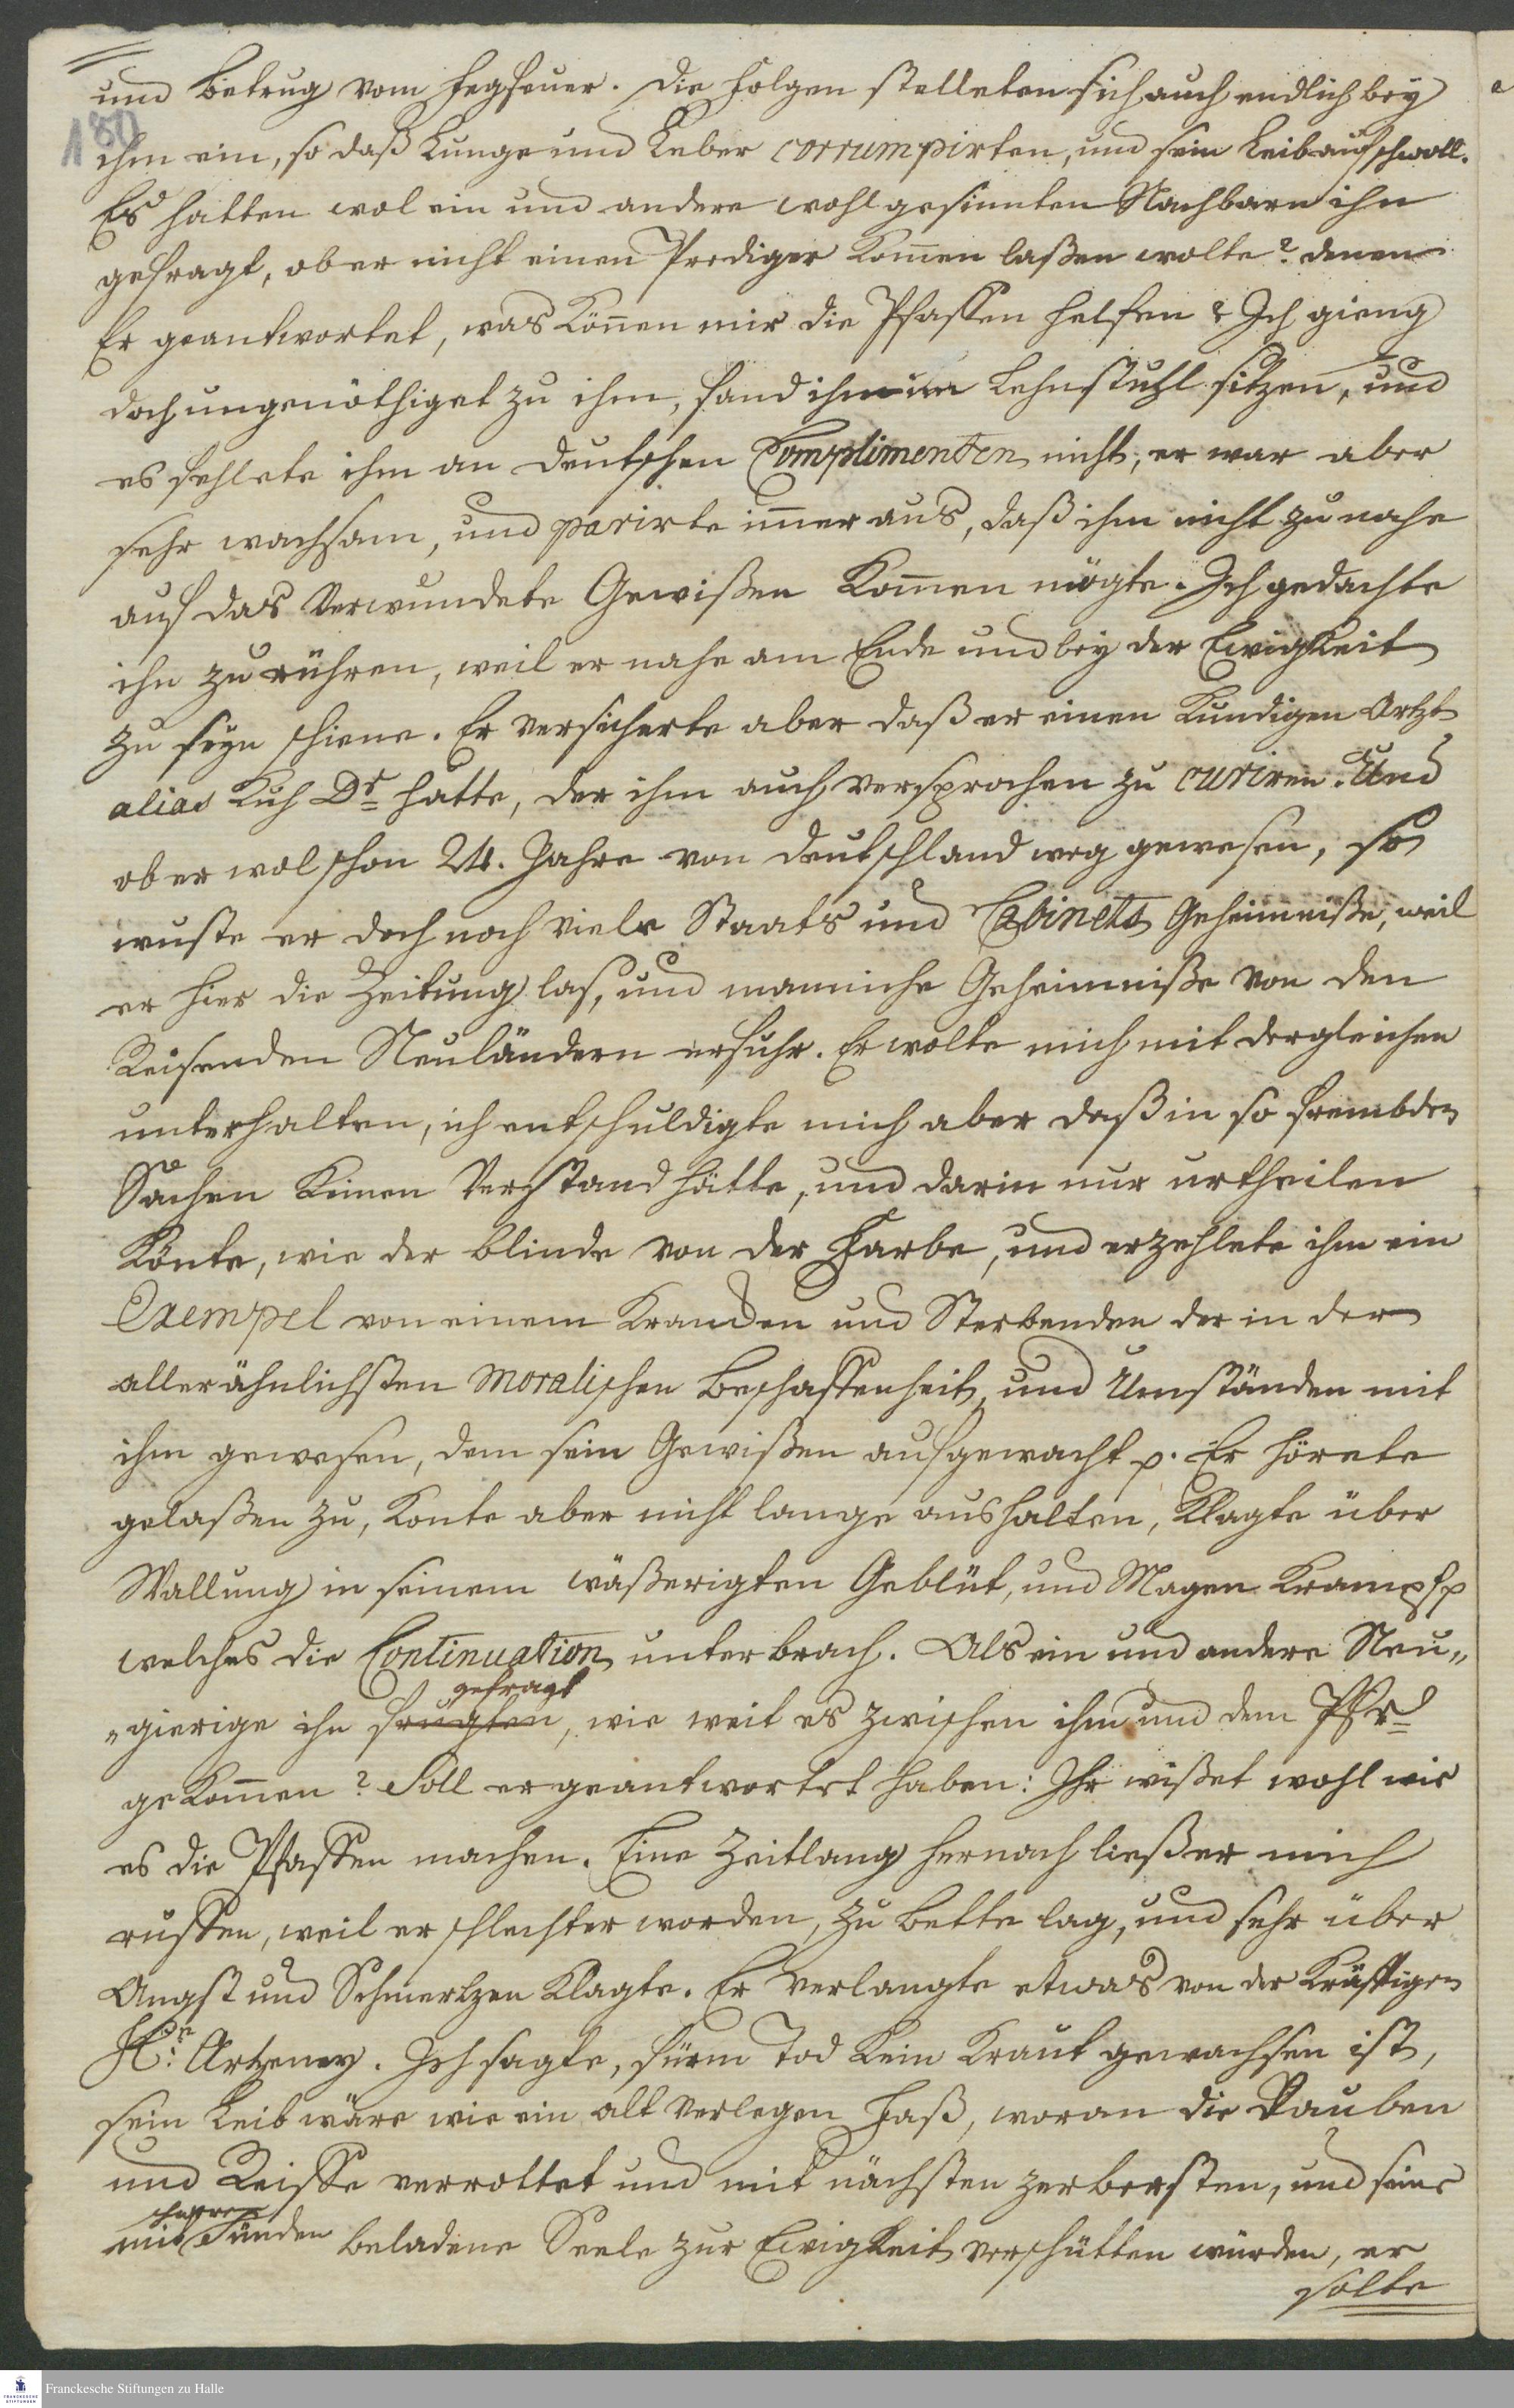 und Betrug vom Fegfeuer. Die Folgen stelleten sich auch endlich bey
180
ihm ein, so daß Lunge und Leber corrumpirten, und sein Leib aufschwoll.
Es hatten wol ein und andere wohlgesinnten Nachbarn ihn
gefragt, ob er nicht einen Prediger kom̄en laßen wolte? denen
Er geantwortet, was kön̄en mir die Pfaffen helfen? Ich gieng
doch ungenöthiget zu ihm, fand ihn im Lehnstuhl sitzen, und
es fehlete ihm an deutschen Complimenten nicht, er war aber
sehr wachsam, und parirte im̄er aus, daß ihm nicht zu nahe
auf das verwundete Gewißen kom̄en mögte. Ich gedachte
ihn zu rühren, weil er nahe am Ende und bey der Ewigkeit
zu seyn schiene. Er versicherte aber daß er einen kundigen Artzt
alias Kuh Dr hätte, der ihm auch versprochen zu curiren. Und
ob er wol schon 24. Jahre von Deutschland weg gewesen, so
wuste er doch noch viele Staats und Cabinets Geheimniße, weil
er hier die Zeitung las, und manniche Geheimniße von den
Reisenden Neuländern erfuhr. Er wolte mich mit dergleichen
unterhalten, ich entschuldigte mich aber daß in so frembden
Sachen keinen Verstand hätte, und darin nur urtheilen
könte, wie der Blinde von der Farbe, und erzehlete ihm ein
Exempel von einem Krancken und Sterbenden der in der
allerähnlichsten Moralischen Beschaffenheit und Umständen mit
ihm gewesen, dem sein Gewißen aufgewacht p. Er hörete
gelaßen zu, konte aber nicht lange aushalten, klagte über
Wallung in seinem wäßerigten Geblüt, und Magen Krampf p
welches die Continuation unterbrach. Als ein und andere Neu„
gefragt
„gierige ihn frugten, wie weit es zwischen ihm und dem Pfr
gekom̄en? Soll er geantwortet haben: Ihr wißet wohl wie
es die Pfaffen machen. Eine Zeitlang hernach ließ er mich
ruffen, weil er schlechter worden, zu Bette lag, und sehr über
Angst und Schmertzen klagte. Er verlangte etwas von der kräftigen
Artzeney. Ich sagte, fürm Tod kein Kraut gewachsen ist,
sein Leib wäre wie ein alt verlegen Faß, woran die Dauben
und Reiffe verrottet und mit nächsten zerbersten, und seine
mit Sünden beladene Seele zur Ewigkeit verschütten würden, er
solte
Franckesche Stiftungen zu Halle